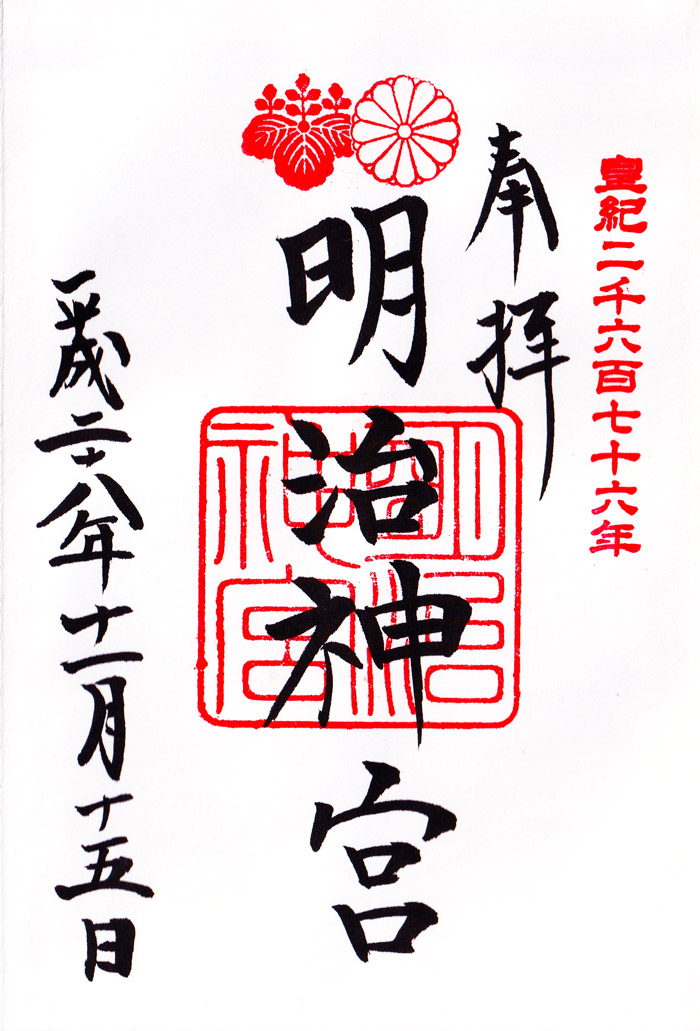 皇紀二千六百七十六年
奉拝
明治神宮
明治神宮
平成二十八年十一月十五日